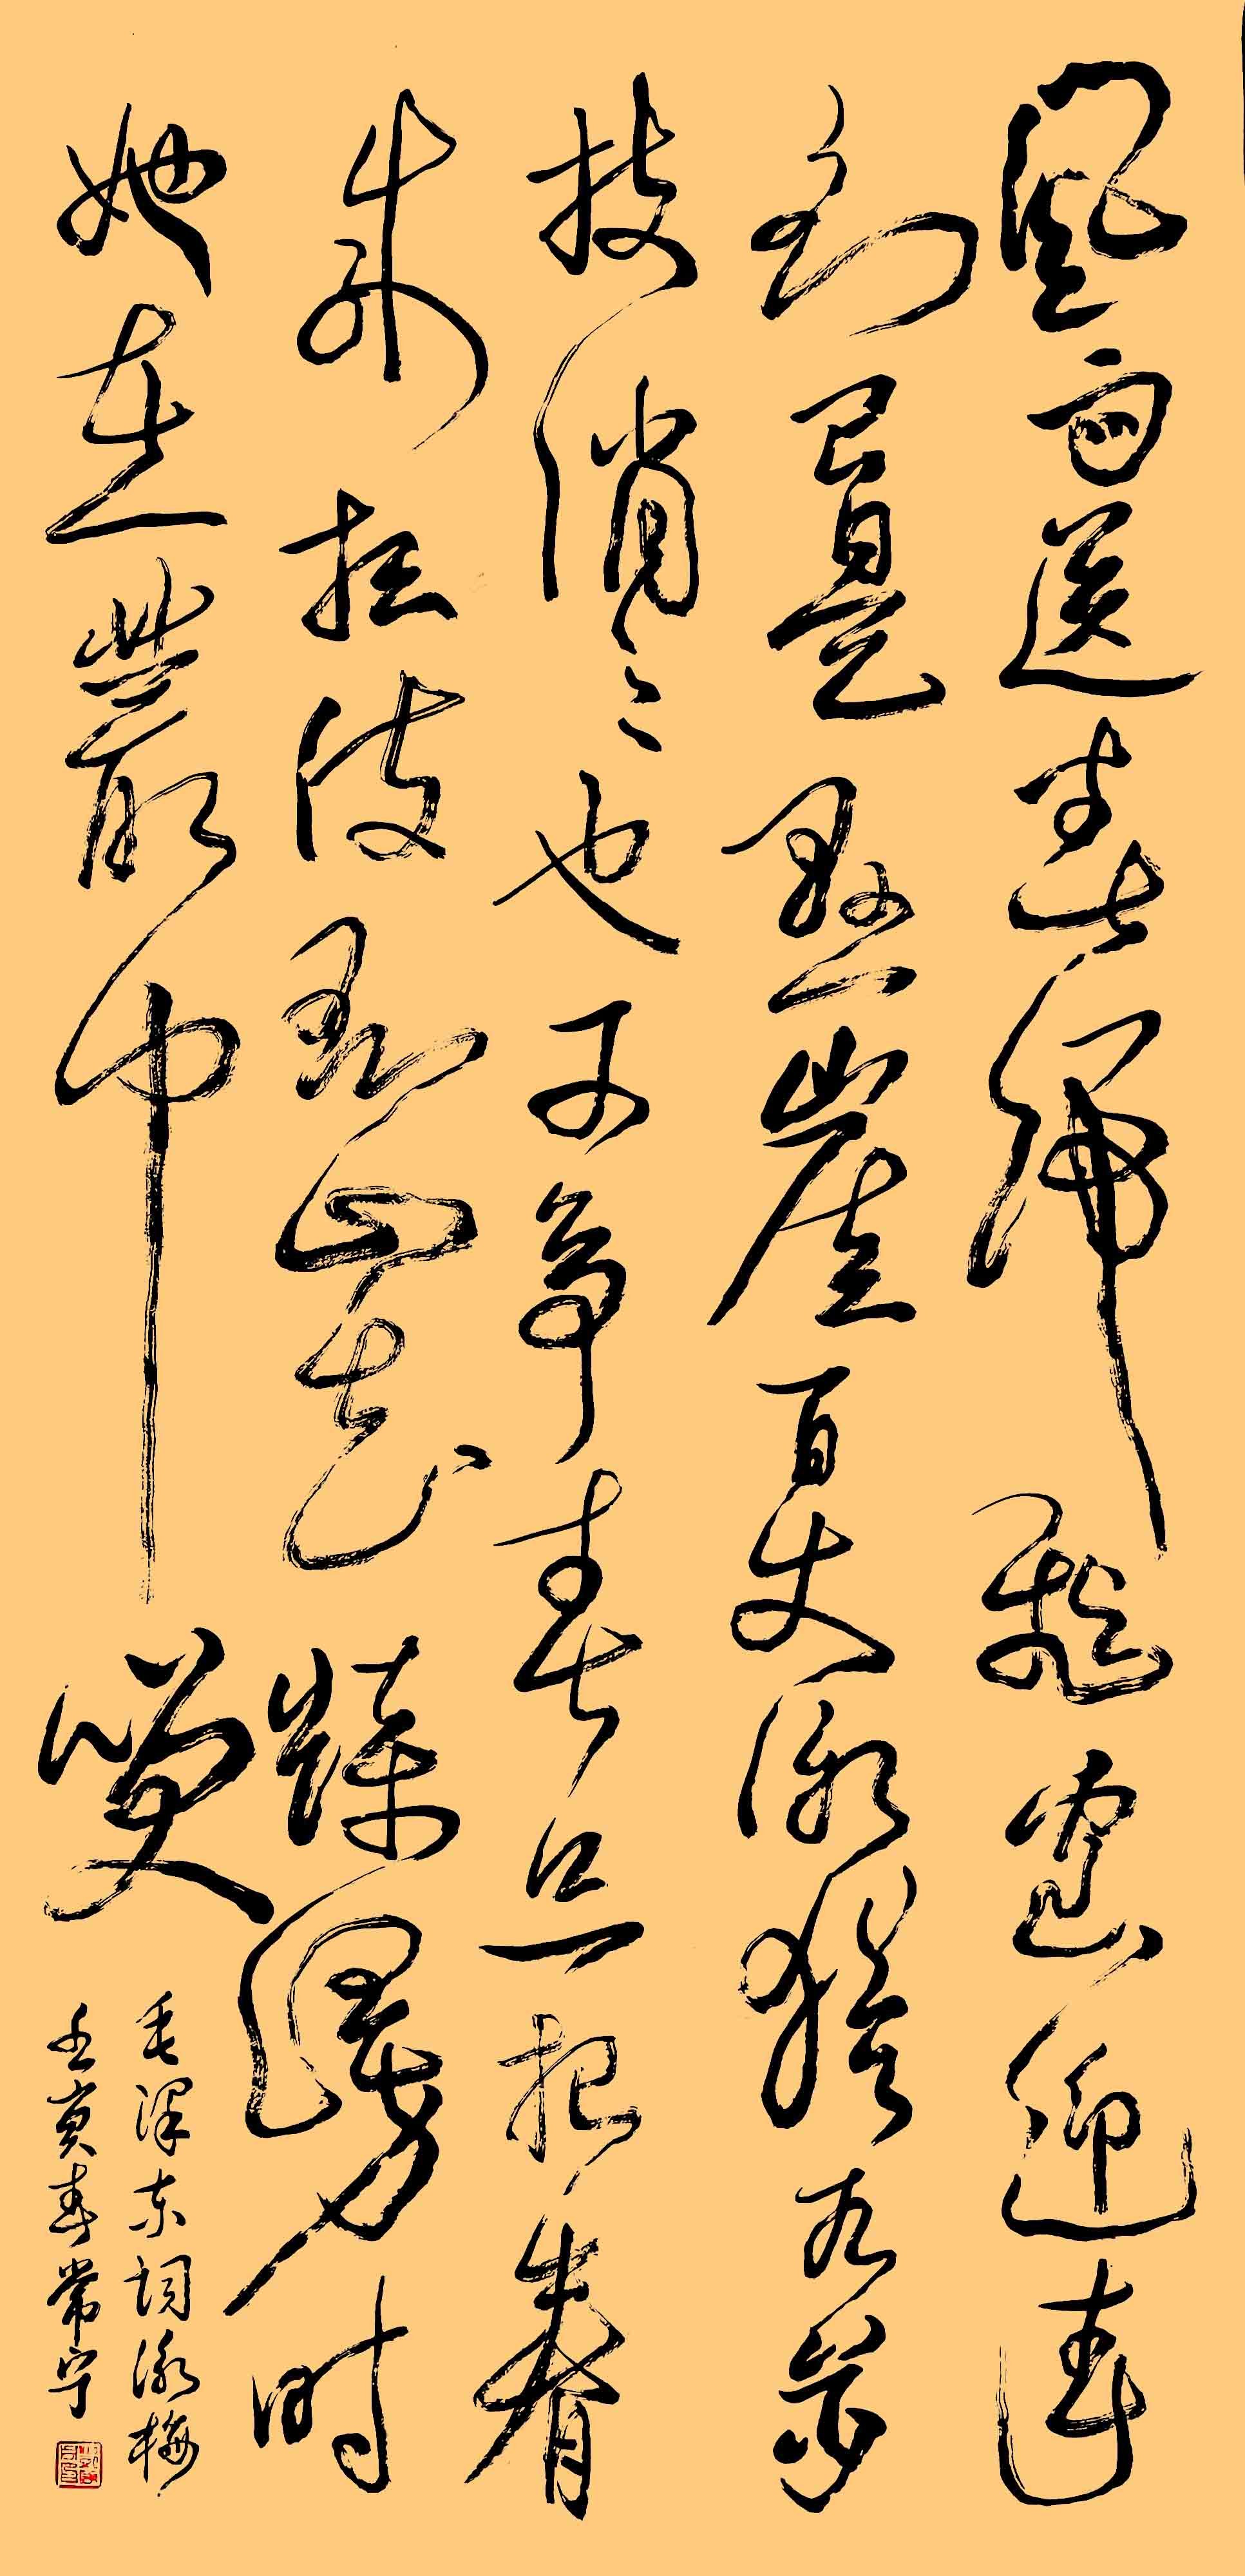 風雨送春歸飛雪迎春
到已是懸崖百丈冰猶有花
枝俏々也不争春只把春
来报待到山花爛漫时
她在叢中笑
毛泽东词咏梅
壬寅春常宁